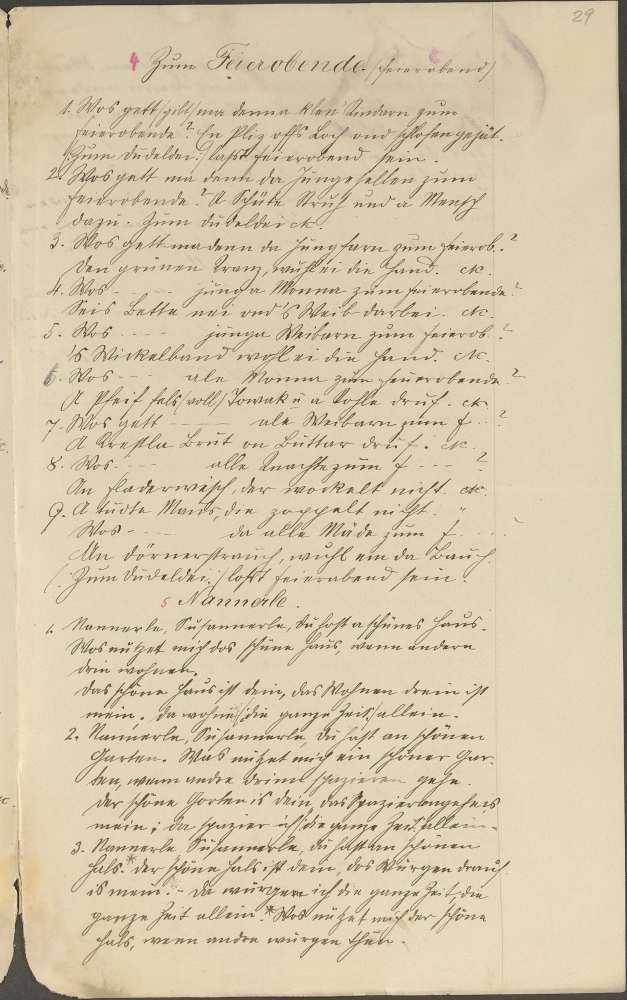 29
4 Zum Feierobende. (Feierobend)
1. Wos gett (gilt) ma denna klen' Kindarn zum
Feierobende? En Pliz offs Loch ond schlofen gejät.
|: Zum dudeldei :| lasst Feierobend sein.
2. Wos gett ma denn da Junggesellen zum
Feierobende? A Schüte Struh und a Mensch
dazu. Zum dudeldei etc.
3. Wos gett ma denn da Jungfarn zum Feierob.?
Den grünen Kranz, wuhl ei die Hand. etc.
4. Wos - - - junga Monna zum Feierobende?
Seis Bette nei ond's Weib darbei. etc.
5. Wos - - - - junga Weibarn zum Feierob.?
's Wickelband wohl ei die Hand. etc.
6. Wos - - - ale Monna zum Feierobende?
A Pfeif fols (voll) Towak u a Kohle druf. etc
7. Wos gett - - - - ale Weibarn zum F. . . ?
A Krestla Brut on Buttar druf. etc.
8. Wos. - - - alle Knachte zum F - - - ?
An Fladerwisch, der wockelt nicht. etc.
9. A tudte Maus, die zoppelt nicht. "
Wos - - - - da alle Mäde zum F. . . .
An Dörnerstrauch, wuhl em da Bauch.
|: Zum dudeldei :| losst Feierabend sein.
5 Nannerle.
1. Nannerle, Susannerle, du host a schönes Haus.
Wos nutzet mich dos schöne Haus, wenn andern
drin wohnen.
Das schöne Haus ist dein, das Wohnen drein ist
mein. Da wohne |: die ganze Zeit :| allein.
2. Nannerle, Susannerle, du hast an schönen
Garten. Was nutzet mich ein schöner Gar-
ten, wenn andre drinn spazieren gehn.
Der schöne Gorten is dein, das Spazierengehen is
mein; da spazier ich |: die ganze Zeit :| allein.
3. Nannerle Susannerle, du hast an schönen
Hals.* der schöne Hals ist dein, das Würgen drauf
is mein. - Da würgen ich die ganze Zeit, die
ganze Zeit allein. * Wos nutzet mich der schöne
Hals, wenn andre würgen thun.